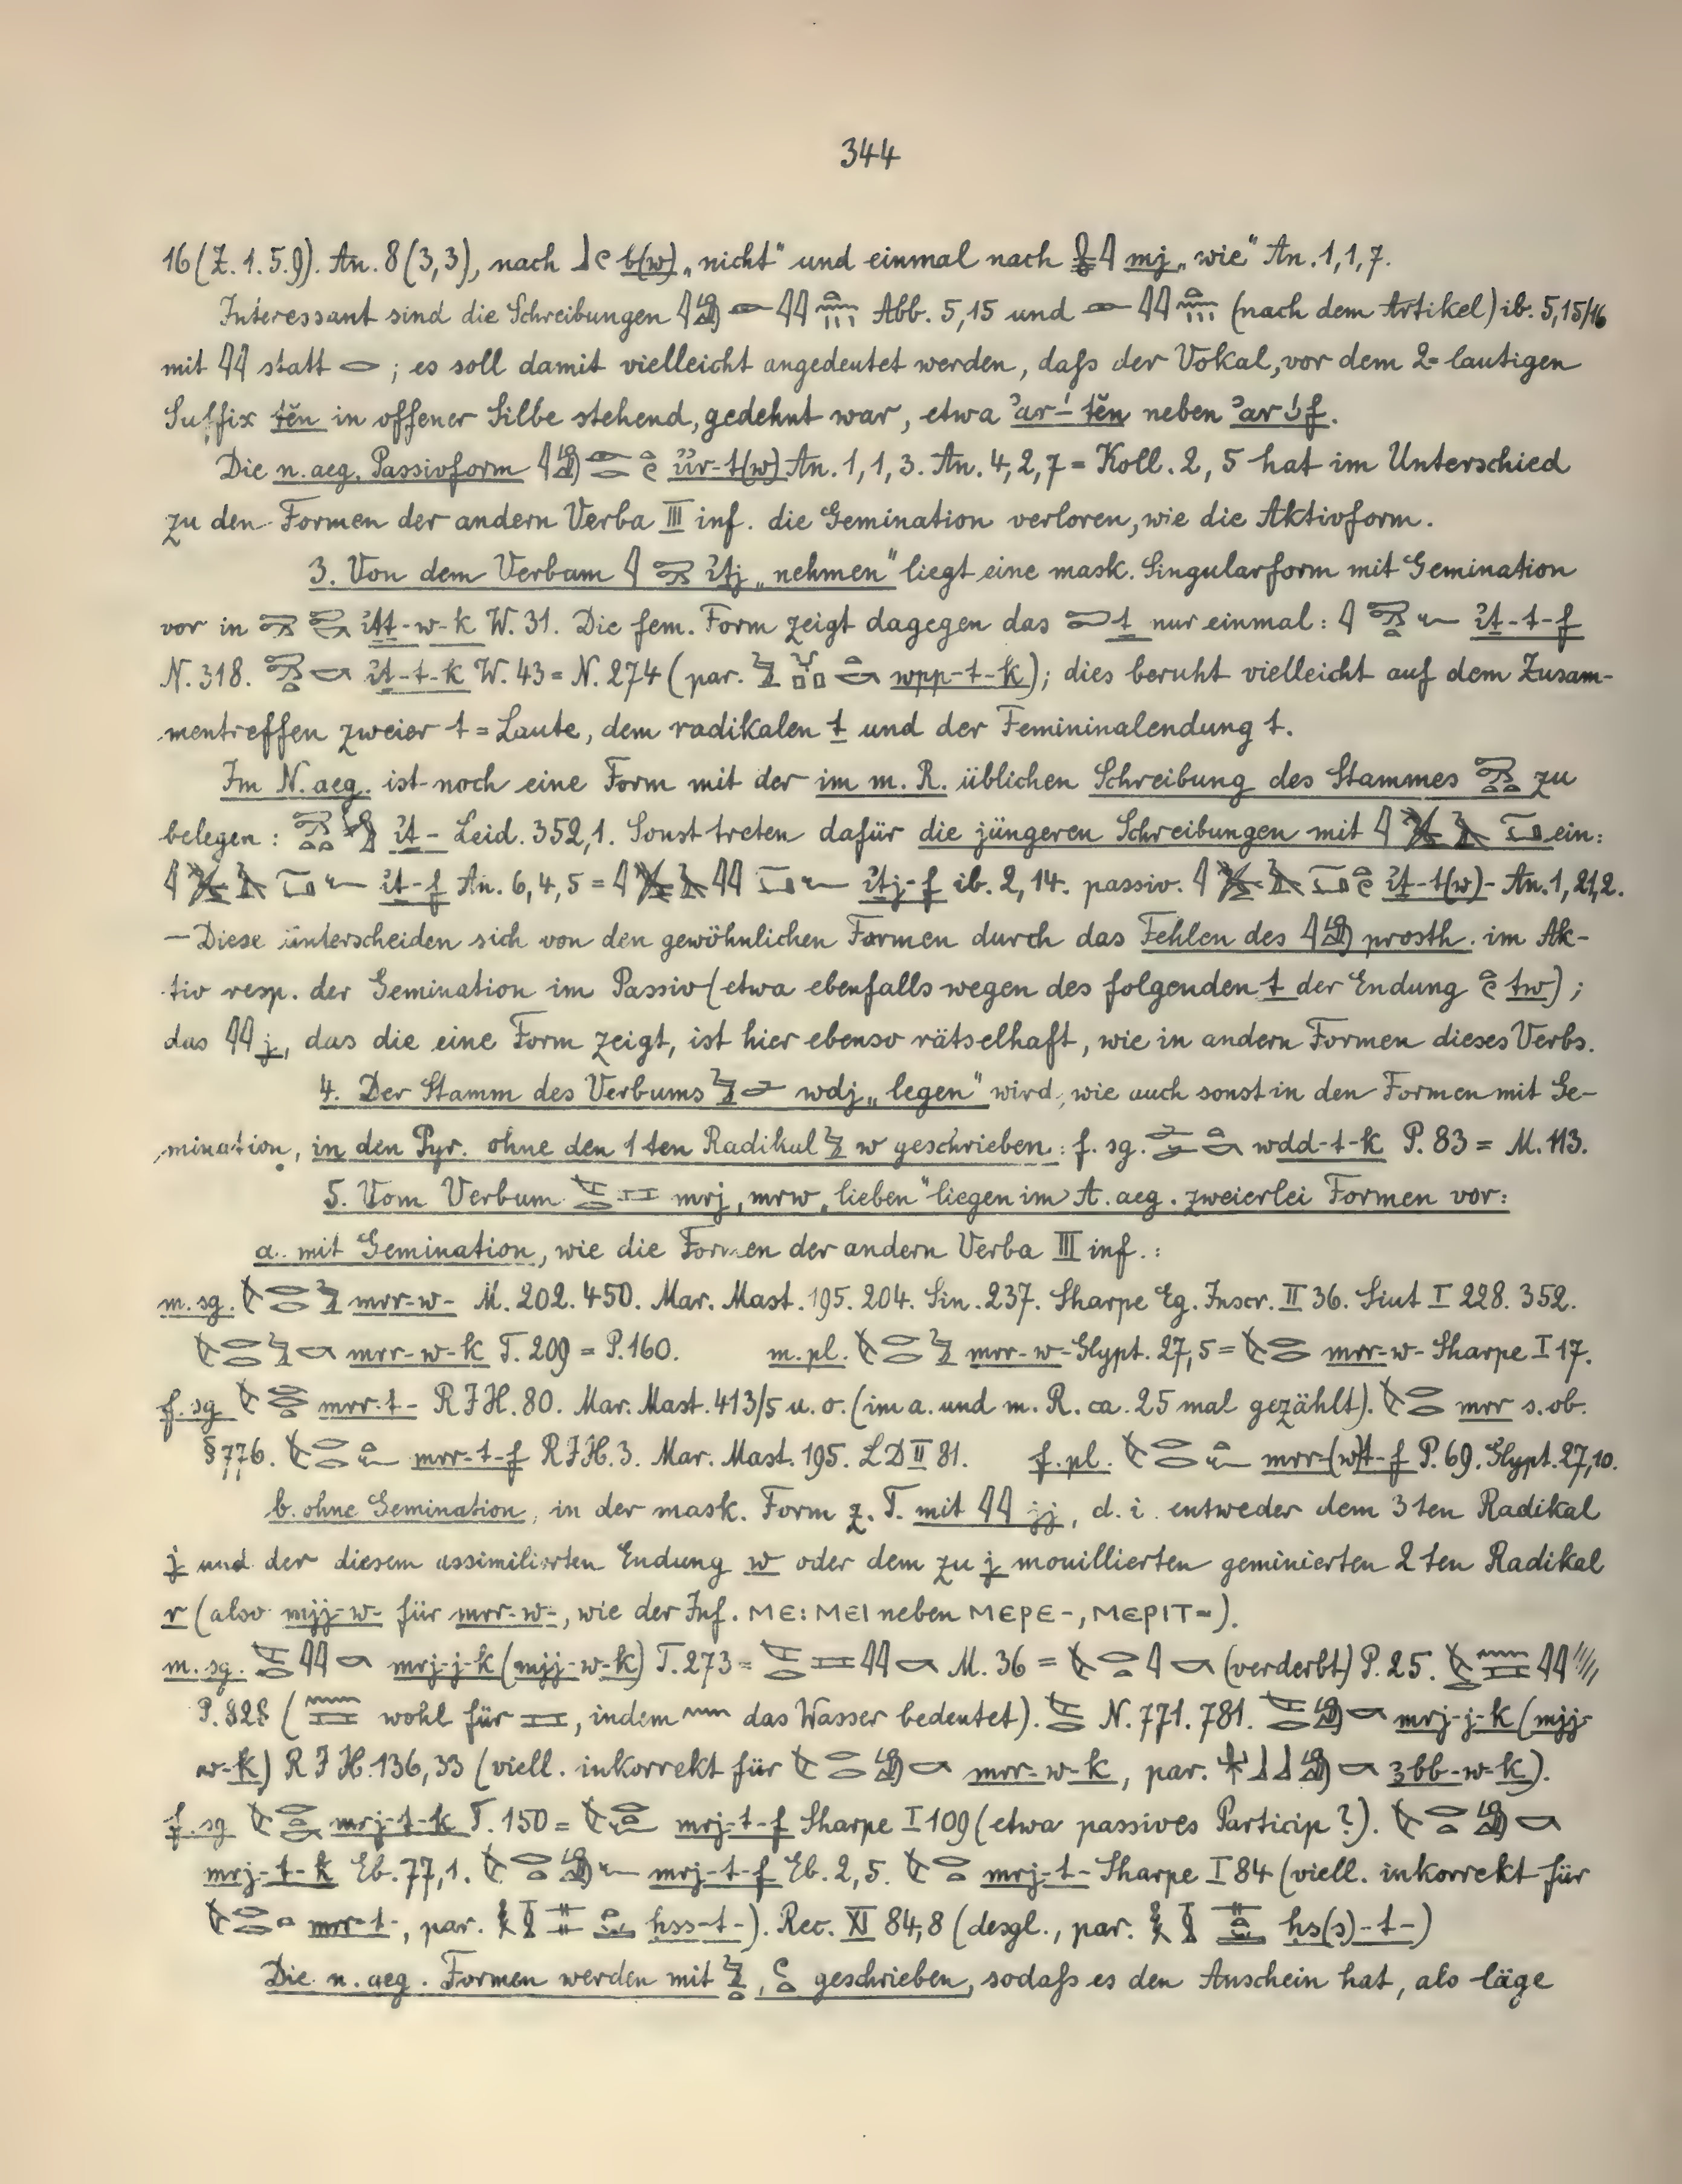 344
16 (Z. 1. 5. 9). An. 8 (3,3), nach 𓃀𓏲 b(w) „nicht“ und einmal nach 𓏇𓇋 mj „wie“ An. 1, 1, 7.
Interessant sind die Schreibungen 𓇋𓀁𓁹𓇌 Abb. 5,15 und 𓁹𓇌 (nach dem Artikel) ib. 5,15/16
mit 𓇌 statt 𓂋; es soll damit vielleicht angedeutet werden, daſs der Vokal, vor dem 2=lautigen
Suffix ten in offener Silbe stehend, gedehnt war, etwa neben
Die n. aeg. Passivform 𓇋𓀁𓁹𓂋𓏏𓏲 An. 1, 1, 3. An. 4, 2, 7 = Koll. 2, 5 hat im Unterschied
zu den Formen der andern Verba III inf. die Gemination verloren, wie die Aktivform.
3. Von dem Verbum 𓇋 iṯj „nehmen“ liegt eine mask. Singularform mit Gemination
vor in iṯṯ-w-k W. 31. Die fem. Form zeigt dagegen das 𓍿 ṯ nur einmal: 𓇋 iṯ-t-f
N. 318. iṯ-t-k W. 43 = N. 274 (par. wpp-t-k); dies beruht vielleicht auf dem Zusam-
mentreffen zweier t=Laute, dem radikalen ṯ und der Femininalendung t.
Im N. aeg. ist noch eine Form mit der im m. R. üblichen Schreibung des Stammes zu
belegen: iṯ- Leid. 352,1. Sonst treten dafür die jüngeren Schreibungen mit 𓇋 ein:
𓇋 iṯ-f An. 6, 4, 5 = 𓇋 iṯj-f ib. 2, 14. passiv. 𓇋 iṯ-t(w)- An. 1, 21,2.
— Diese unterscheiden sich von den gewöhnlichen Formen durch das Fehlen des 𓇋𓀁 prosth. im Ak-
tiv resp. der Gemination im Passiv (etwa ebenfalls wegen des folgenden t der Endung 𓏏𓏲 tw);
das 𓇌 j, das die eine Form zeigt, ist hier ebenso rätselhaft, wie in andern Formen dieses Verbs.
4. Der Stamm des Verbums wdj „legen“ wird, wie auch sonst in den Formen mit Ge-
mination, in den Pyr. ohne den 1ten Radikal 𓅱 w geschrieben: f. sg. wdd-t-k P. 83 = M. 113.
5. Vom Verbum mrj, mrw „lieben“ liegen im A. aeg. zweierlei Formen vor:
a. mit Gemination, wie die Formen der andern Verba III inf.:
m. sg. 𓌸𓂋𓂋𓅱 mrr-w- M. 202. 450. Mar. Mast. 195. 204. Sin. 237. Sharpe Eg. Inscr. II 36. Siut I 228. 352.
𓌸𓂋𓂋𓅱𓎡 mrr-w-k T. 209 = P. 160. m. pl. 𓌸𓂋𓂋𓅱 mrr-w- Glypt. 27,5 = 𓌸𓂋𓂋 mrr-w- Sharpe I 17.
f. sg 𓌸𓂋𓂋𓏏 mrr-t- RIH. 80. Mar. Mast. 413/5 u. o. (im a. und m. R. ca. 25 mal gezählt). 𓌸𓂋𓂋 mrr s. ob.
§ 776. 𓌸𓂋𓂋𓏏𓆑 mrr-t-f RIH. 3. Mar. Mast. 195. LD II 81. f. pl. 𓌸𓂋𓂋𓏏𓆑 mrr-(w)t-f P. 69. Glypt. 27,10.
b. ohne Gemination, in der mask. Form z. T. mit 𓇌 jj, d. i. entweder dem 3ten Radikal
j und der diesem assimilierten Endung w oder dem zu j mouillierten geminierten 2ten Radikal
r (also mjj-w- für mrr-w-, wie der Inf. ⲘⲈ: ⲘⲈⲒ neben ⲘⲈⲢⲈ-, ⲘⲈⲢⲒⲦ=).
m. sg. 𓇌𓎡 mrj-j-k (mjj-w-k) T. 273 = 𓇌𓎡 M. 36 = 𓌸𓂋𓏏𓇋𓎡 (verderbt) P. 25. 𓇌
P. 828 ( wohl für 𓈘, indem 𓈖 das Wasser bedeutet). N. 771. 781. 𓀁𓎡 mrj-j-k (mjj-
w-k) RIH. 136, 33 (viell. inkorrekt für 𓌸𓂋𓂋𓀁𓎡 mrr-w-k, par. 𓃀𓃀𓀁𓎡 3bb-w-k).
f. sg 𓌸𓂋𓏏𓎡 mrj-t-k T. 150 = 𓌸𓂋𓏏𓆑 mrj-t-f Sharpe I 109 (etwa passives Particip?). 𓌸𓂋𓏏𓀁𓎡
mrj-t-k Eb. 77, 1. 𓌸𓂋𓏏𓀁𓆑 mrj-t-f Eb. 2, 5. 𓌸𓂋𓏏 mrj-t- Sharpe I 84 (viell. inkorrekt für
𓌸𓂋𓂋𓏏 mrr-t-, par. hss-t-). Rec. XI 84, 8 (desgl., par. hs(s)-t-)
Die n. aeg. Formen werden mit 𓅱𓏏, 𓏲𓏏 geschrieben, sodaſs es den Anschein hat, als läge